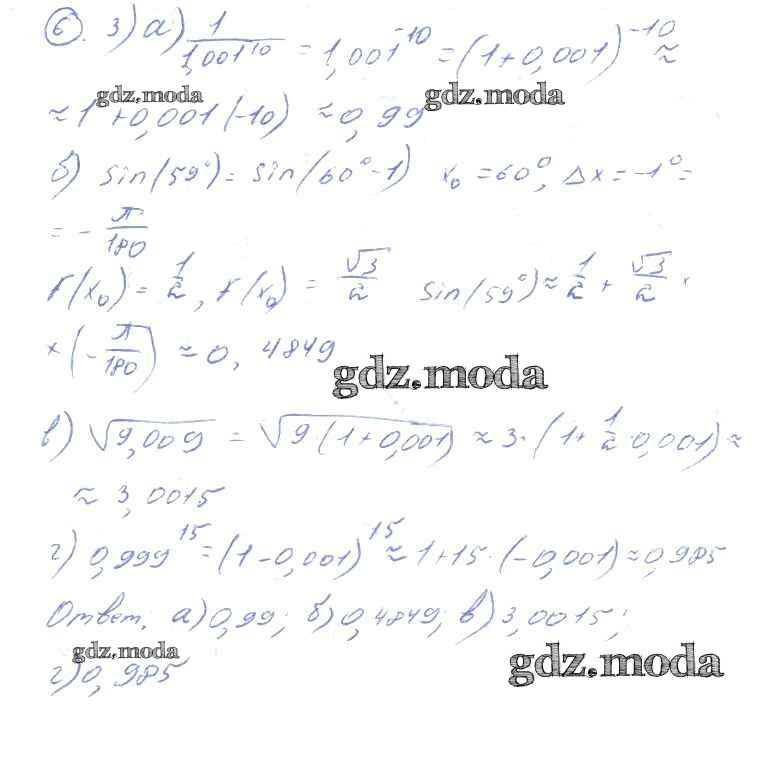 6. 3) а) 1/1,001^10 = 1,001^-10 = (1+0,001)^-10 ≈
gdz.moda gdz.moda
≈ 1+0,001(-10) ≈ 0,99
б) sin(59°) = sin(60°-1) x₀ = 60°, Δx = -1° =
= - π/180
f(x₀) = 1/2, f(x₀) = √3/2 sin(59°) ≈ 1/2 + √3/2 ·
× (-π/180) ≈ 0,4849
gdz.moda
в) √9,009 = √9·(1+0,001) ≈ 3·(1+1/2·0,001) ≈
≈ 3,0015
г) 0,999^15 = (1-0,001)^15 ≈ 1+15·(-0,001) ≈ 0,985
Ответ. а) 0,99; б) 0,4849; в) 3,0015;
gdz.moda gdz.moda
г) 0,985